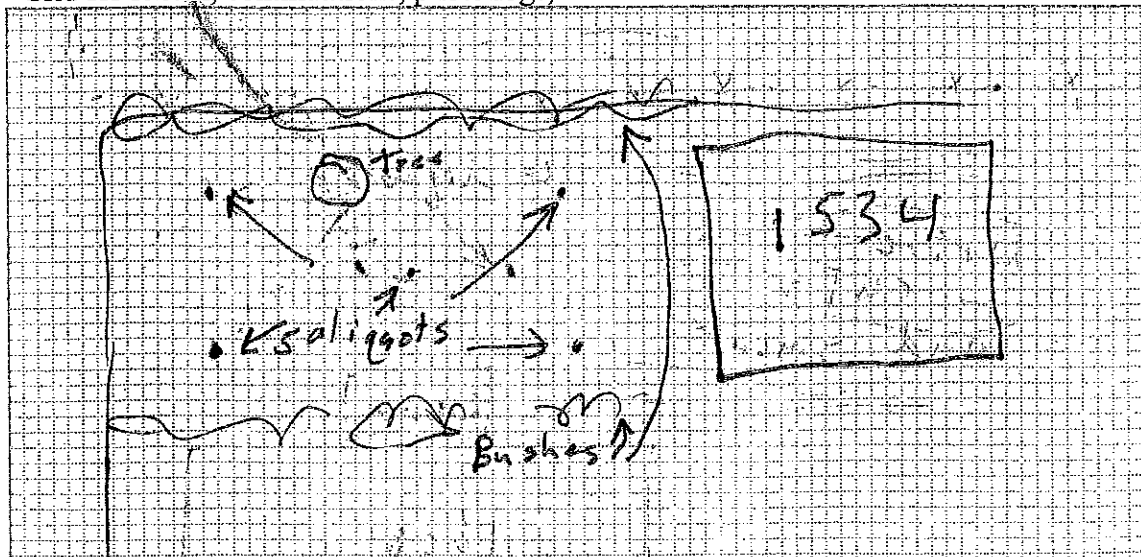 tree
1534
saliggots
Bushes